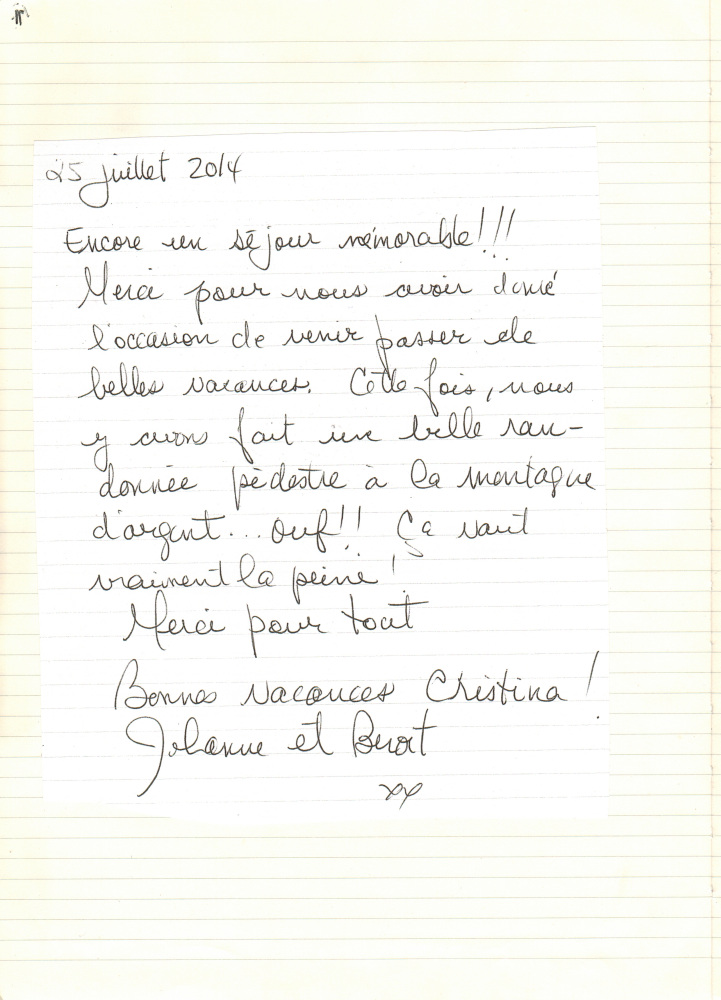 25 juillet 2014
Encore un séjour mémorable!!!
Merci pour nous avoir donné
l'occasion de venir passer de
belles vacances. Cette fois, nous
y avons fait une belle ran-
donnée pédestre à la montagne
d'argent... Ouf!! Ça vaut
vraiment la peine!
Merci pour tout
Bonnes vacances Christina!
Johanne et Benoit
xx